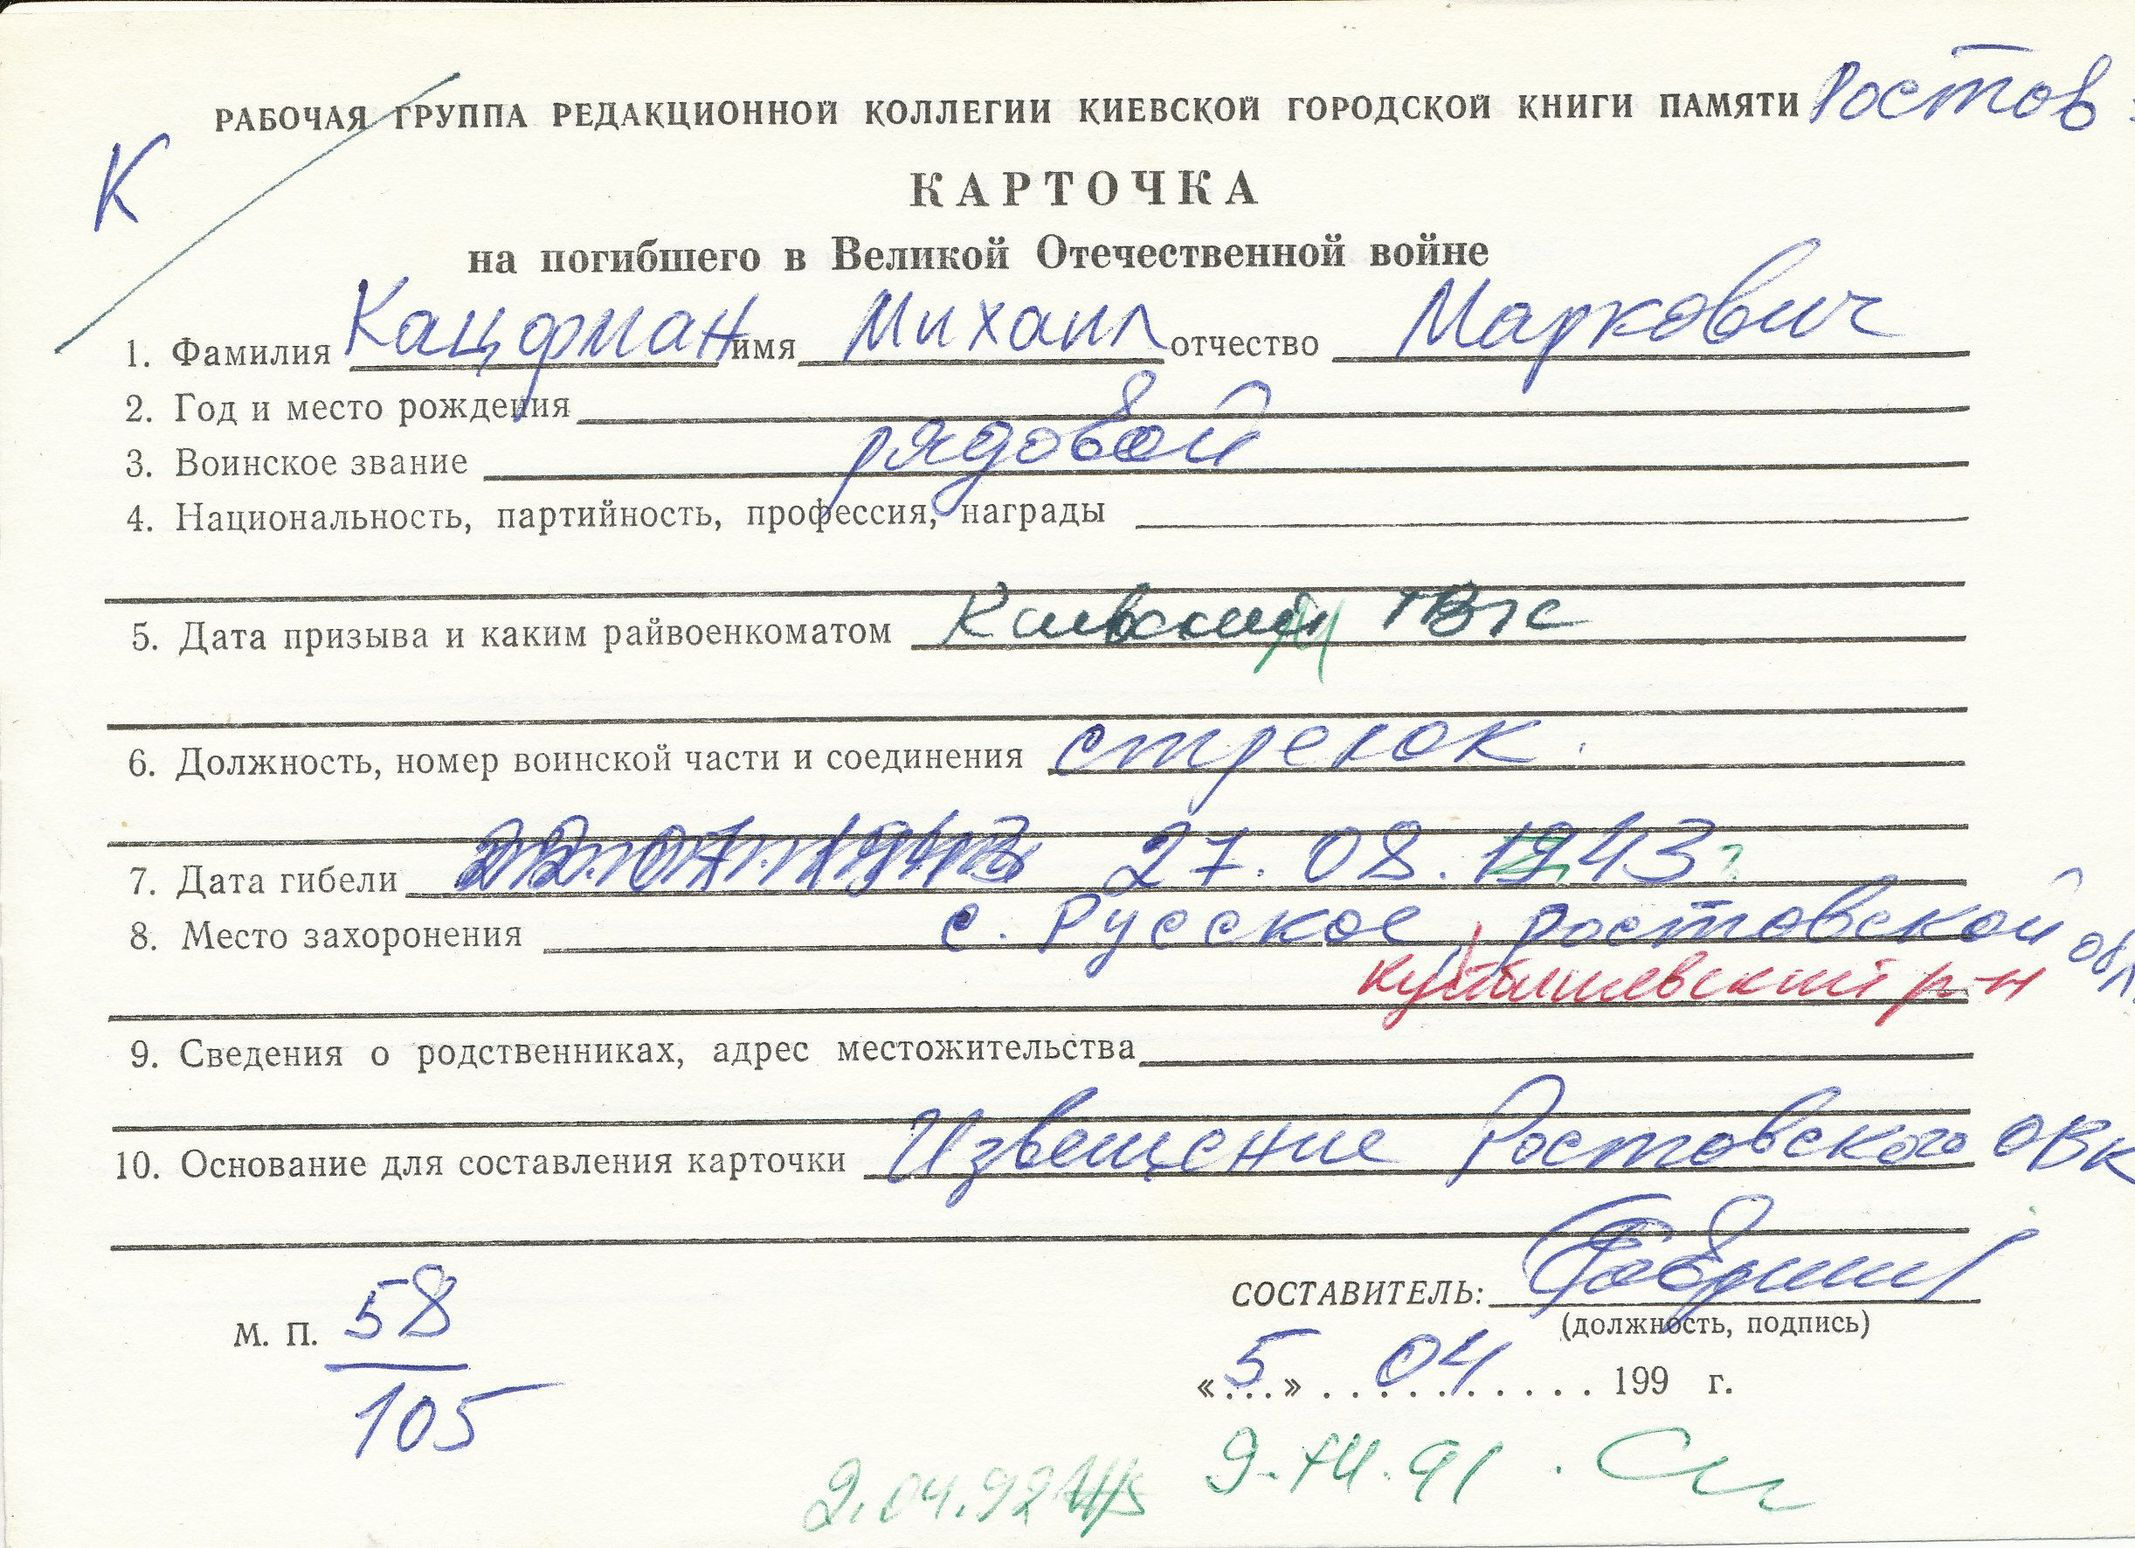 РАБОЧАЯ ГРУППА РЕДАКЦИОННОЙ КОЛЛЕГИИ КИЕВСКОЙ ГОРОДСКОЙ КНИГИ ПАМЯТИ Ростов
К
КАРТОЧКА
на погибшего в Великой Отечественной войне
1. Фамилия Кацфман имя Михаил отчество Маркович
2. Год и место рождения
3. Воинское звание рядовой
4. Национальность, партийность, профессия, награды
5. Дата призыва и каким райвоенкоматом Киевский
6. Должность, номер воинской части и соединения стрелок
7. Дата гибели 22.07.1943 27.08.1943
8. Место захоронения с. Русское, Ростовской обл.
Куйбышевский р-н
9. Сведения о родственниках, адрес местожительства
10. Основание для составления карточки Извещение Ростовского ОВК
СОСТАВИТЕЛЬ:
(должность, подпись)
М. П. 58
105
«5» 04 199 г.
2.04.92